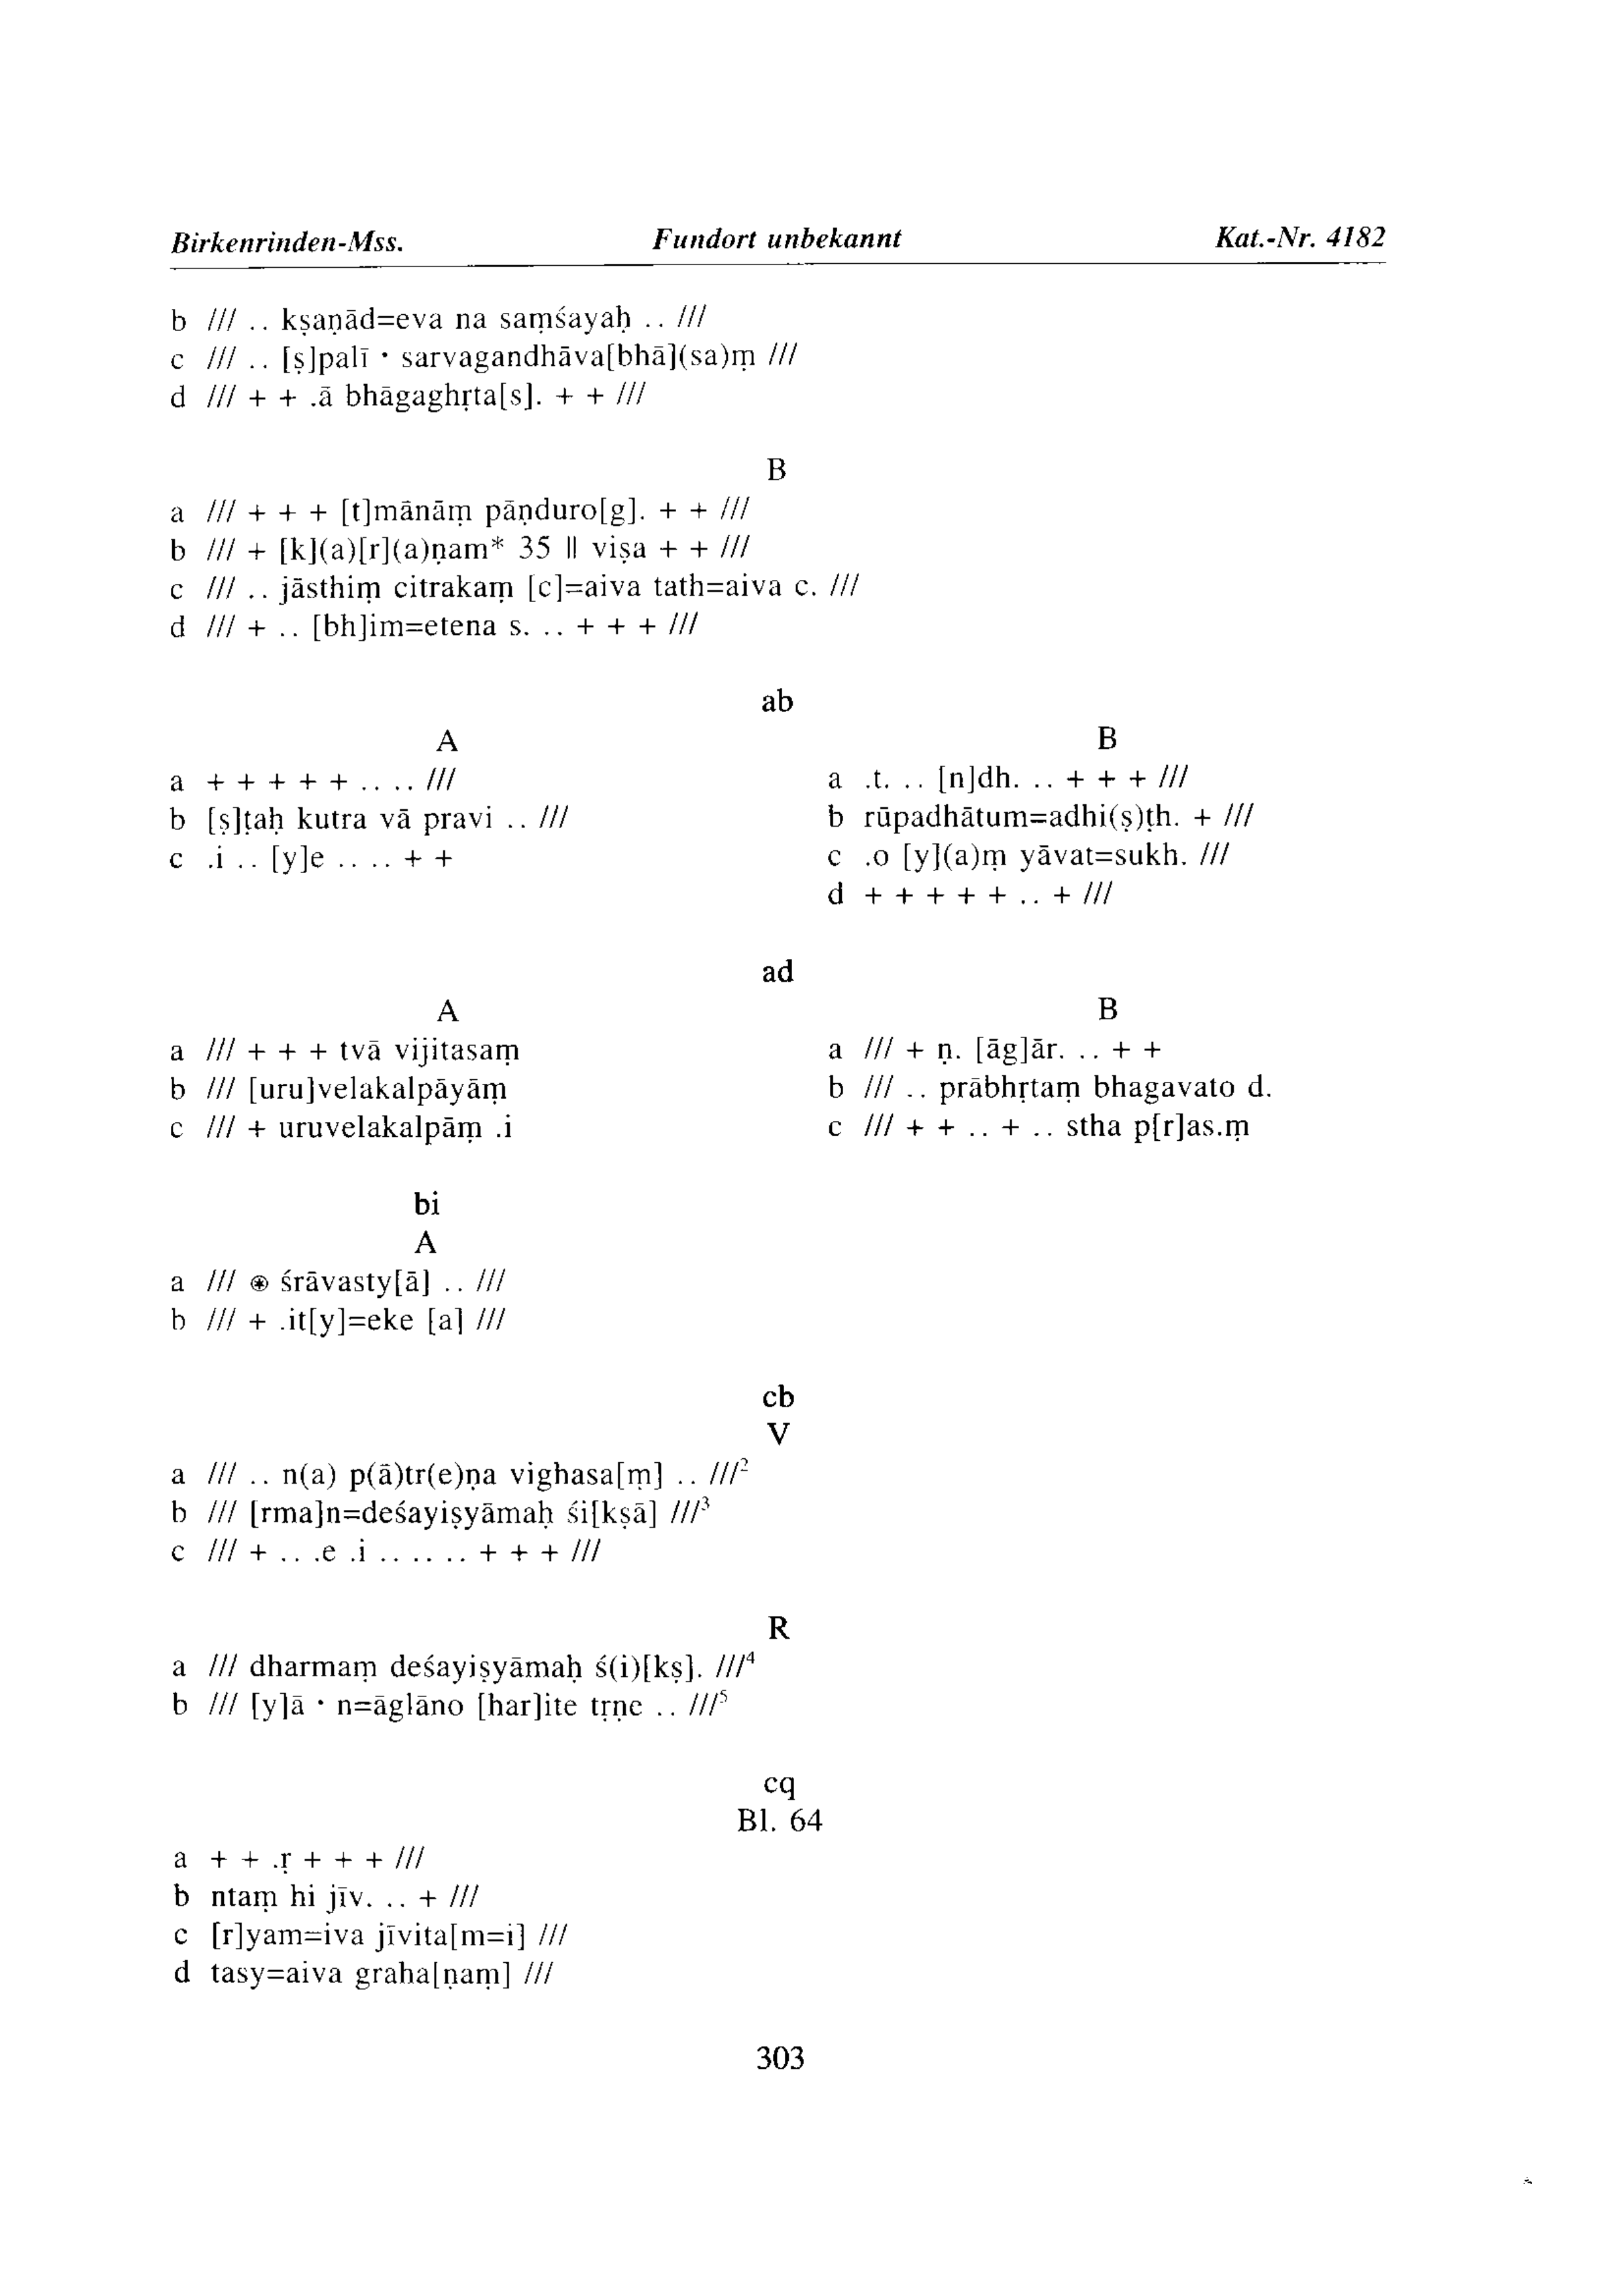 Birkenrinden-Mss. Fundort unbekannt Kat.-Nr. 4182
b /// .. kṣaṇād=eva na saṃśayaḥ .. ///
c /// .. [ṣ]palī • sarvagandhāva[bhā](sa)ṃ ///
d /// + + .ā bhāgaghṛta[s]. + + ///
B
a /// + + + [t]mānāṃ pāṇduro[g]. + + ///
b /// + [k](a)[r](a)ṇam* 35 || viṣa + + ///
c /// .. jāsthiṃ citrakaṃ [c]=aiva tath=aiva c. ///
d /// + .. [bh]im=etena s. .. + + + ///
ab
A
a + + + + + .. .. ///
b [ṣ]ṭaḥ kutra vā pravi .. ///
c .i .. [y]e .. .. + +
B
a .t. .. [n]dh. .. + + + ///
b rūpadhātum=adhi(ṣ)ṭh. + ///
c .o [y](a)ṃ yāvat=sukh. ///
d + + + + + .. + ///
ad
A
a /// + + + tvā vijitasaṃ
b /// [uru]velakalpāyāṃ
c /// + uruvelakalpāṃ .i
B
a /// + ṇ. [āg]ār. .. + +
b /// .. prābhṛtaṃ bhagavato d.
c /// + + .. + .. stha p[r]as.ṃ
bi
A
a /// ⊛ śrāvasty[ā] .. ///
b /// + .it[y]=eke [a] ///
cb
V
a /// .. n(a) p(ā)tr(e)ṇa vighasa[ṃ] .. ///²
b /// [rma]n=deśayiṣyāmaḥ śi[kṣā] ///³
c /// + .. .e .i .. .. .. + + + ///
R
a /// dharmaṃ deśayiṣyāmaḥ ś(i)[kṣ]. ///⁴
b /// [y]ā • n=āglāno [har]ite tṛṇe .. ///⁵
cq
Bl. 64
a + + .ṛ + + + ///
b ntaṃ hi jīv. .. + ///
c [r]yam=iva jīvita[m=i] ///
d tasy=aiva graha[ṇaṃ] ///
303